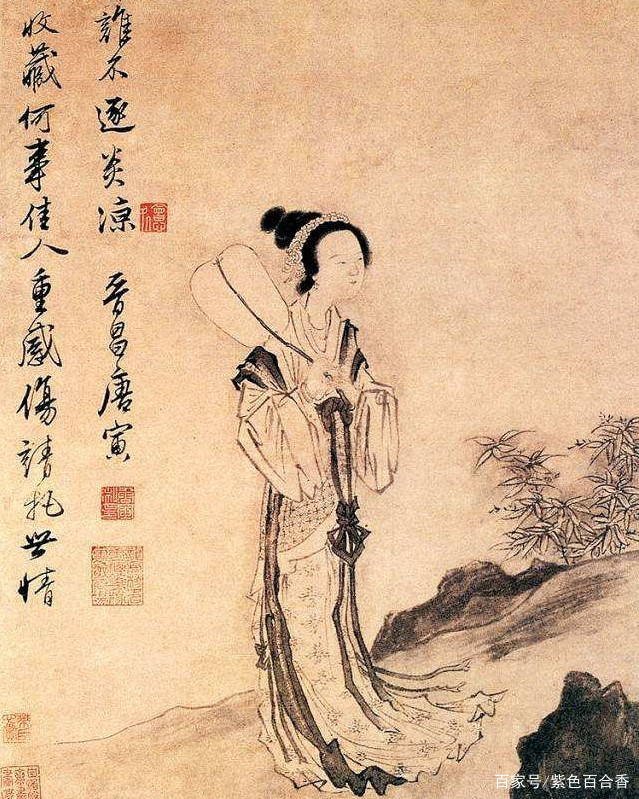 收藏何事佳人重感傷請托世情
誰不逐炎涼 晉昌唐寅
百家号/紫色百合香